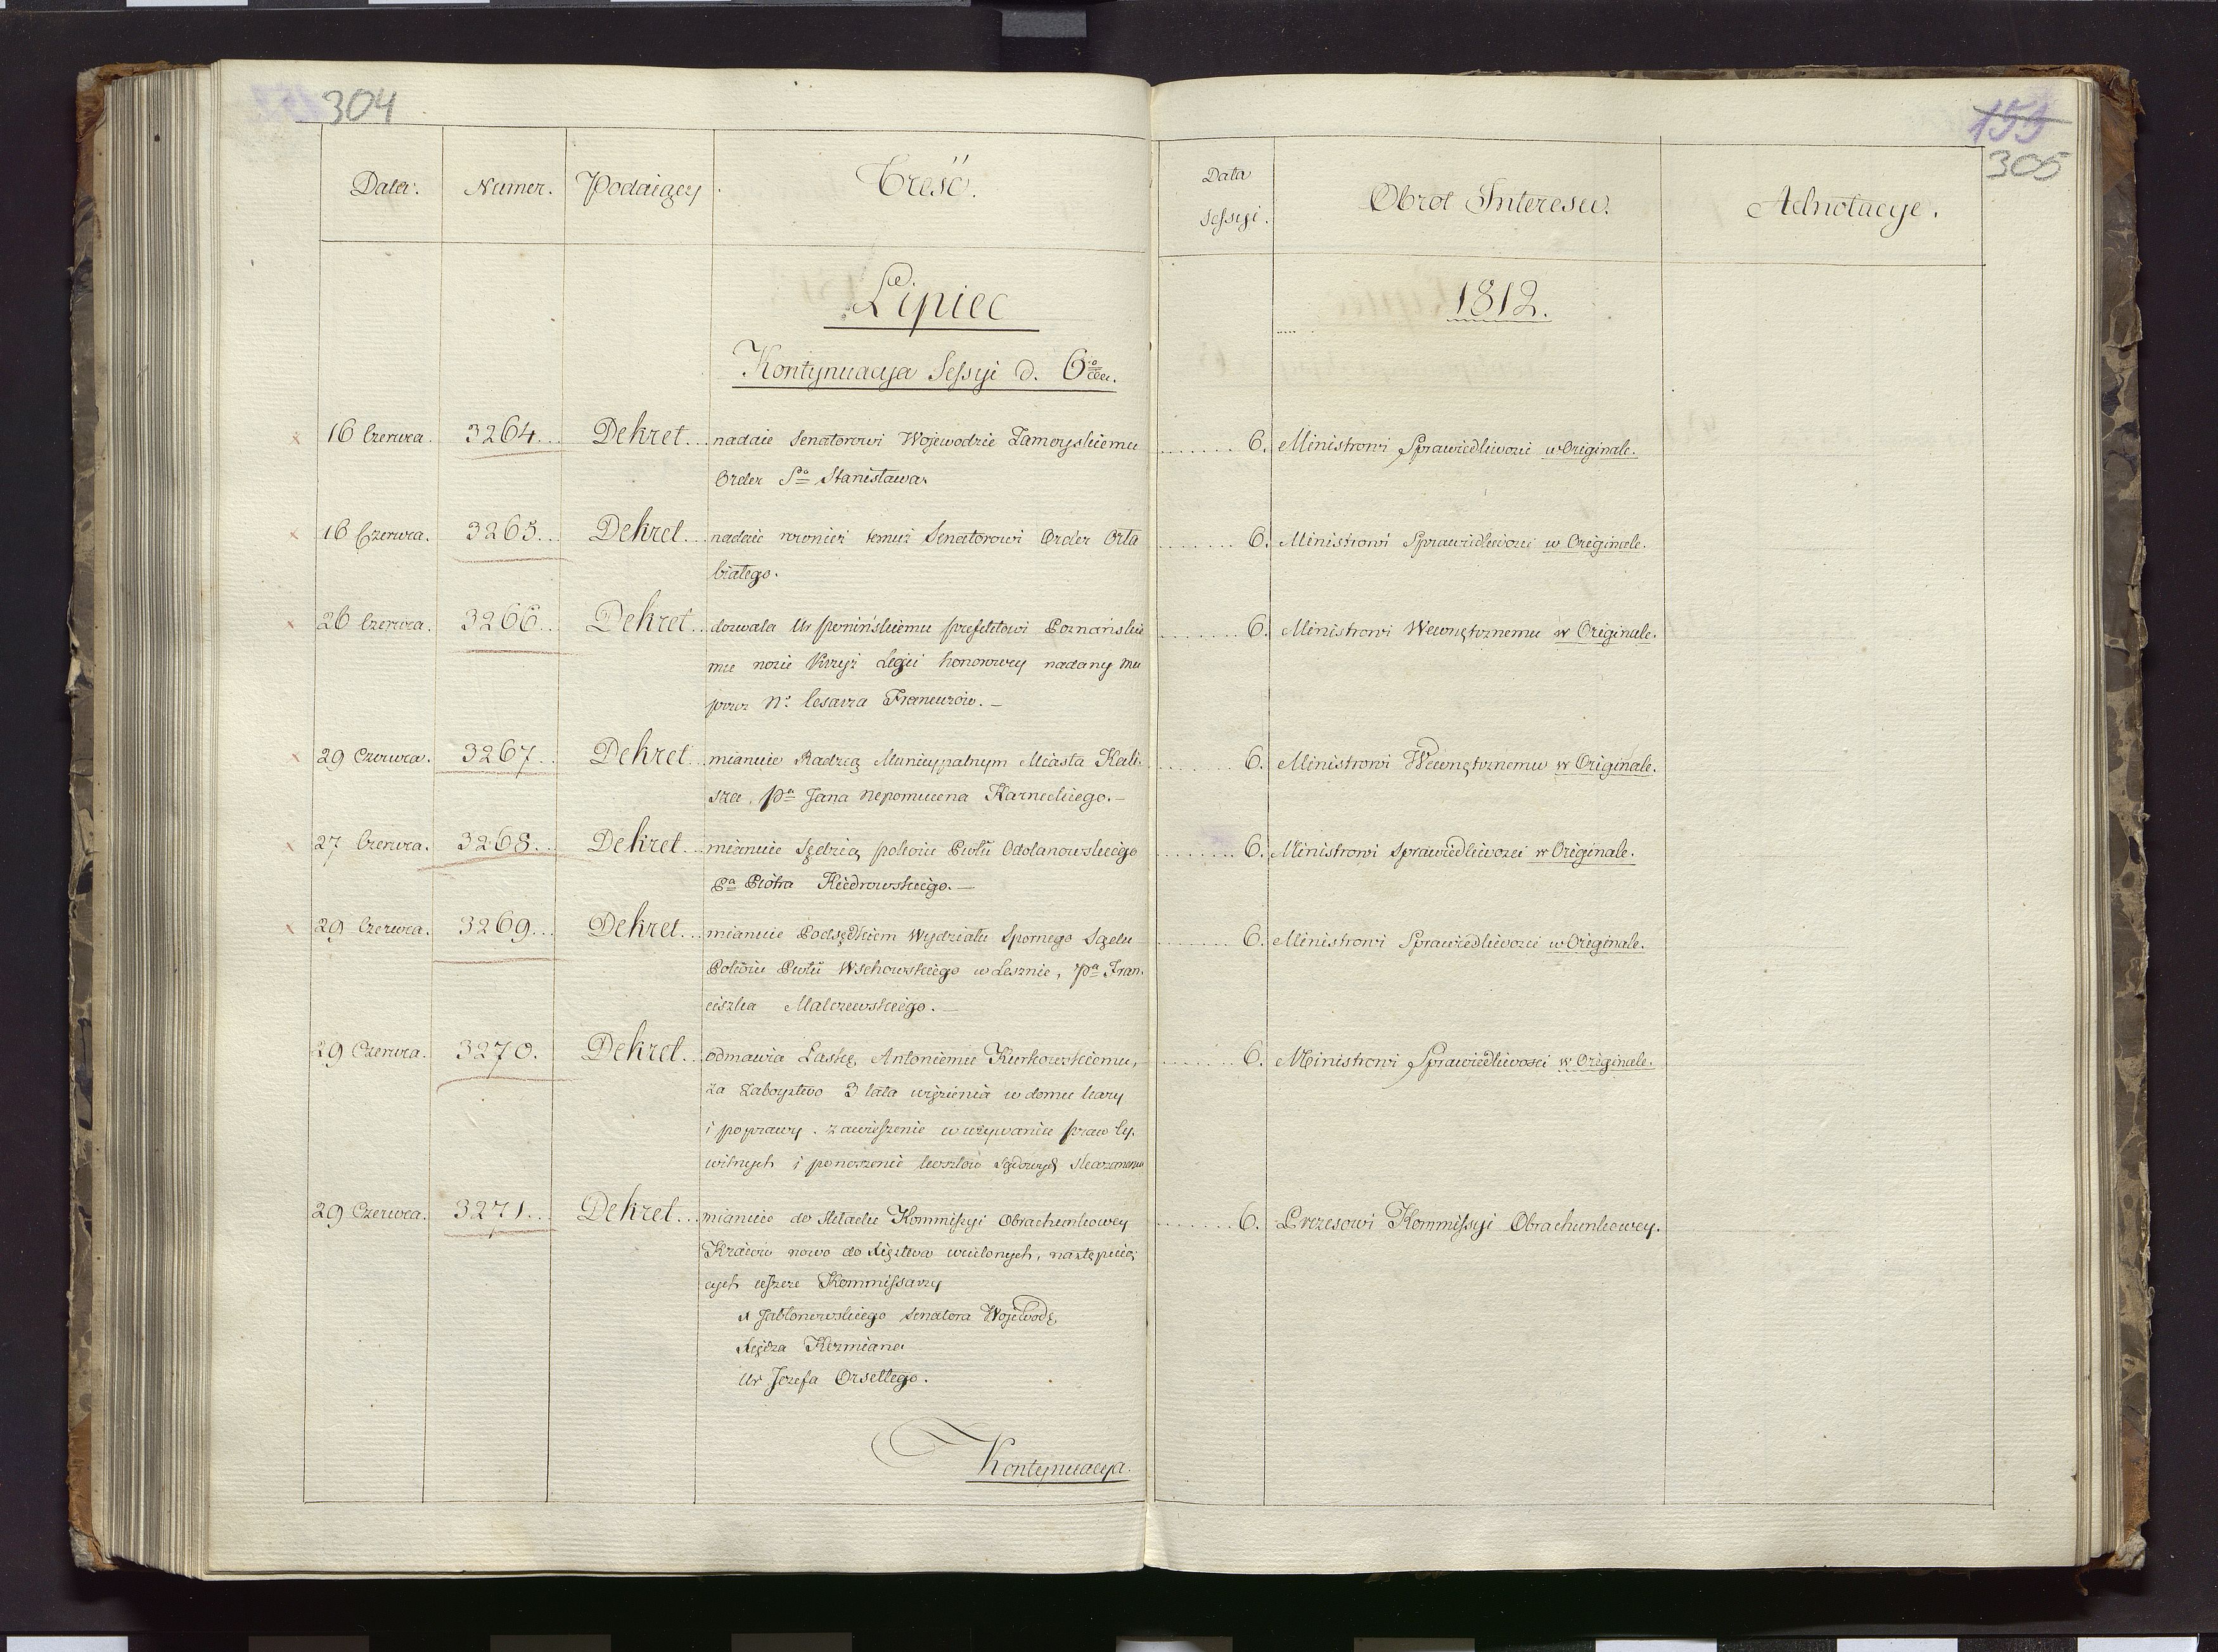 304
Data. Numer. Podaiący Treść.
Lipiec
Kontynuacya Sessyi d. 6
16 Czerwca. 3264... Dekret... nadaie Senatorowi Wojewodzie Zamoyskiemu
Order Sgo Stanisława.
16 Czerwca. 3265... Dekret... nadaie rownież temuż Senatorowi Order Orła
białego.
26 Czerwca. 3266... Dekret... dozwala Ur Ponińskiemu prefektowi Poznańskie
mu nosic Krzyż Legii honorowey nadany mu
przez N. Cesarza Francuzów. —
29 Czerwca. 3267... Dekret... mianuie Radzcą Municypalnym Miasta Kali-
sza, Pa Jana Nepomucena Karneckiego. —
27 Czerwca. 3268... Dekret... mianuie Sędzią pokoiu Ptu Odolanowskiego
Pa Piotra Kiedrowskiego. —
29 Czerwca. 3269... Dekret... mianuie Podsędkiem Wydziału Spornego Sądu
Pokoiu Ptu Wschowskiego w Lesznie, Pa Fran-
ciszka Malczewskiego. —
29 Czerwca. 3270. Dekret... odmawia Łaskę Antoniemu Kurkowskiemu,
za Zaboystwo 3 lata więzienia w domu kary
i poprawy. zawieszenie w używaniu praw Cy-
wilnych i ponoszenie kosztów sądowych skazanemu
29 Czerwca. 3271... Dekret... mianuie do składu Kommissyi Obrachunkowey
Kraiów nowo do Xięztwa wcielonych, następuią-
cych ieszcze Kommissarzy
Jabłonowskiego Senatora Wojewodę,
Xiędza Kozmiana
Ur Jozefa Orsettego.
Kontynuacya.
159
305
Data
Sessyi. Obrot Interesu. Adnotacye.
1812.
6. Ministrowi Sprawiedliwosci w Originale.
6. Ministrowi Sprawiedliwosci w Originale.
6. Ministrowi Wewnętrznemu w Originale.
6. Ministrowi Wewnętrznemu w Originale.
6. Ministrowi Sprawiedliwosci w Originale.
6. Ministrowi Sprawiedliwosci w Originale.
6. Ministrowi Sprawiedliwosci w Originale.
6. Prezesowi Kommissyi Obrachunkowey.